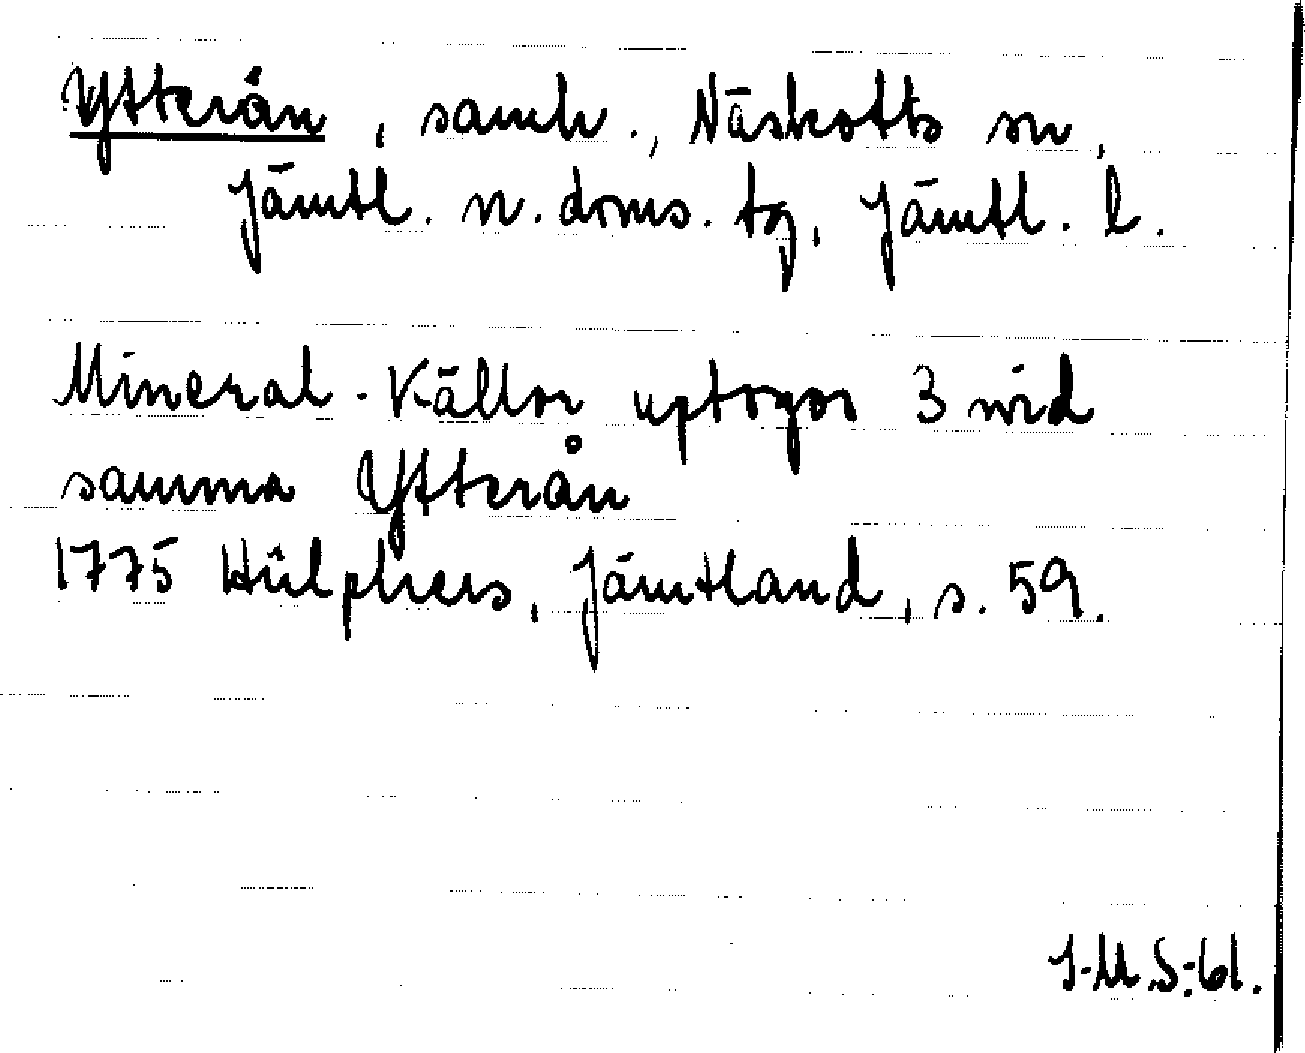 Ytterån, samh., Näskotts sn,
Jämtl. n. doms. tg, Jämtl. l.
Mineral-Källor uptogos 3 wid
samma Ytterån
1775 Hülphers, Jämtland, s. 59.
I-M.S.-61.